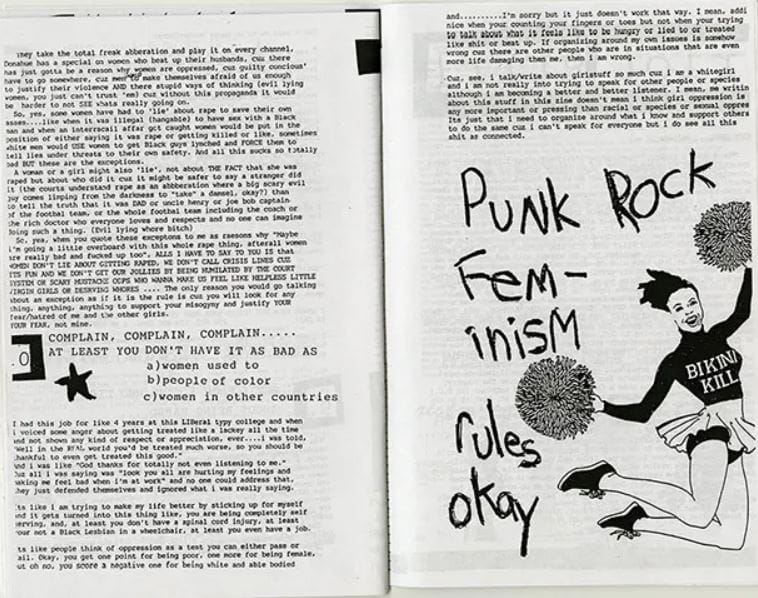 They take the total freak abberation and play it on every channel,
Donahue has a special on women who beat up their husbands, cuz there
has just gotta be a reason why women are oppressed, cuz guilty concious'
have to go somewhere, cuz men make themselves afraid of us enough
to justify their violence AND there stupid ways of thinking (evil lying
women, you just can't trust 'em) cuz without this propaganda it would
be harder to not SEE whats really going on.
So, yes, some women have had to 'lie' about rape to save their own
asses....like when it was illegal (hangable) to have sex with a Black
man and when an interracail affar got caught women would be put in the
position of either saying it was rape or getting killed or like, sometimes
white men would USE women to get Black guys lynched and FORCE them to
tell lies under threats to their own safety. And all this sucks so totally
bad BUT these are the exceptions.
A woman or a girl might also 'lie', not about THE FACT that she was
raped but about who did it cuz it might be safer to say a stranger did
it (the courts understand rape as an abberation where a big scary evil
guy comes limping from the darkness to "take" a damsel, okay?) than
to tell the truth that it was DAD or uncle henry or joe bob captain
of the footbal team, or the whole footbal team including the coach or
the rich doctor who everyone loves and respects and no one can imagine
doing such a thing. (Evil lying whore bitch)
So, yea, when you quote these exceptons to me as raesons why "Maybe
i'm going a little overboard with this whole rape thing, afterall women
are really bad and fucked up too", ALLS I HAVE TO SAY TO YOU IS that
WOMEN DON'T LIE ABOUT GETTING RAPED, WE DON'T CALL CRISIS LINES CUZ
ITS FUN AND WE DON'T GET OUR JOLLIES BY BEING HUMILATED BY THE COURT
SYSTEM OR SCARY MUSTACHE COPS WHO WANNA MAKE US FEEL LIKE HELPLESS LITTLE
VIRGIN GIRLS OR DESERVING WHORES .... The only reason you would go talking
about an exception as if it is the rule is cuz you will look for any
thing, anything, anything to support your misogyny and justify YOUR
fear/hatred of me and the other girls.
YOUR FEAR, not mine.
COMPLAIN, COMPLAIN, COMPLAIN.....
AT LEAST YOU DON'T HAVE IT AS BAD AS
a)women used to
b)people of color
c)women in other countries
I had this job for like 4 years at this LIBeral type college and when
i voiced some anger about getting treated like a lackey all the time
and not shown any kind of respect or appreciation, ever....i was told,
"Well in the REAL world you'd be treated much worse, so you should be
thankful to even get treated this good."
And i was like "God thanks for totally not even listening to me."
Cuz all i was saying was "look you all are hurting my feelings and
making me feel bad when i'm at work" and no one could address that,
they just defended themselves and ignored what i was really saying.
Its like I am trying to make my life better by sticking up for myself
and it gets turned into this thing like, you are being completely self
serving, and, at least you don't have a spinal cord injury, at least
your not a Black Lesbian in a wheelchair, at least you even have a job.
Its like people think of oppression as a test you can either pass or
fail. Okay, you get one point for being poor, one more for being female,
but oh no, you score a negative one for being white and able bodied
and..........I'm sorry but it just doesn't work that way. I mean, addi
nice when your counting your fingers or toes but not when your trying
to talk about what it feels like to be hungry or lied to or treated
like shit or beat up. If organizing around my own issues is somehow
wrong cuz there are other people who are in situations that are even
more life damaging then me, then i am wrong.
Cuz, see, i talk/write about girlstuff so much cuz i am a whitegirl
and i am not really into trying to speak for other people or species
although i am becoming a better and better listener. I mean, me writin
about this stuff in this zine doesn't mean i think girl oppresion is
any more important or pressing than racial or species or sexual oppres
Its just that i need to organize around what i know and support others
to do the same cuz i can't speak for everyone but i do see all this
shit as connected.
PUNK ROCK
Fem-
inisM
rules
okay
BIKINI
KILL